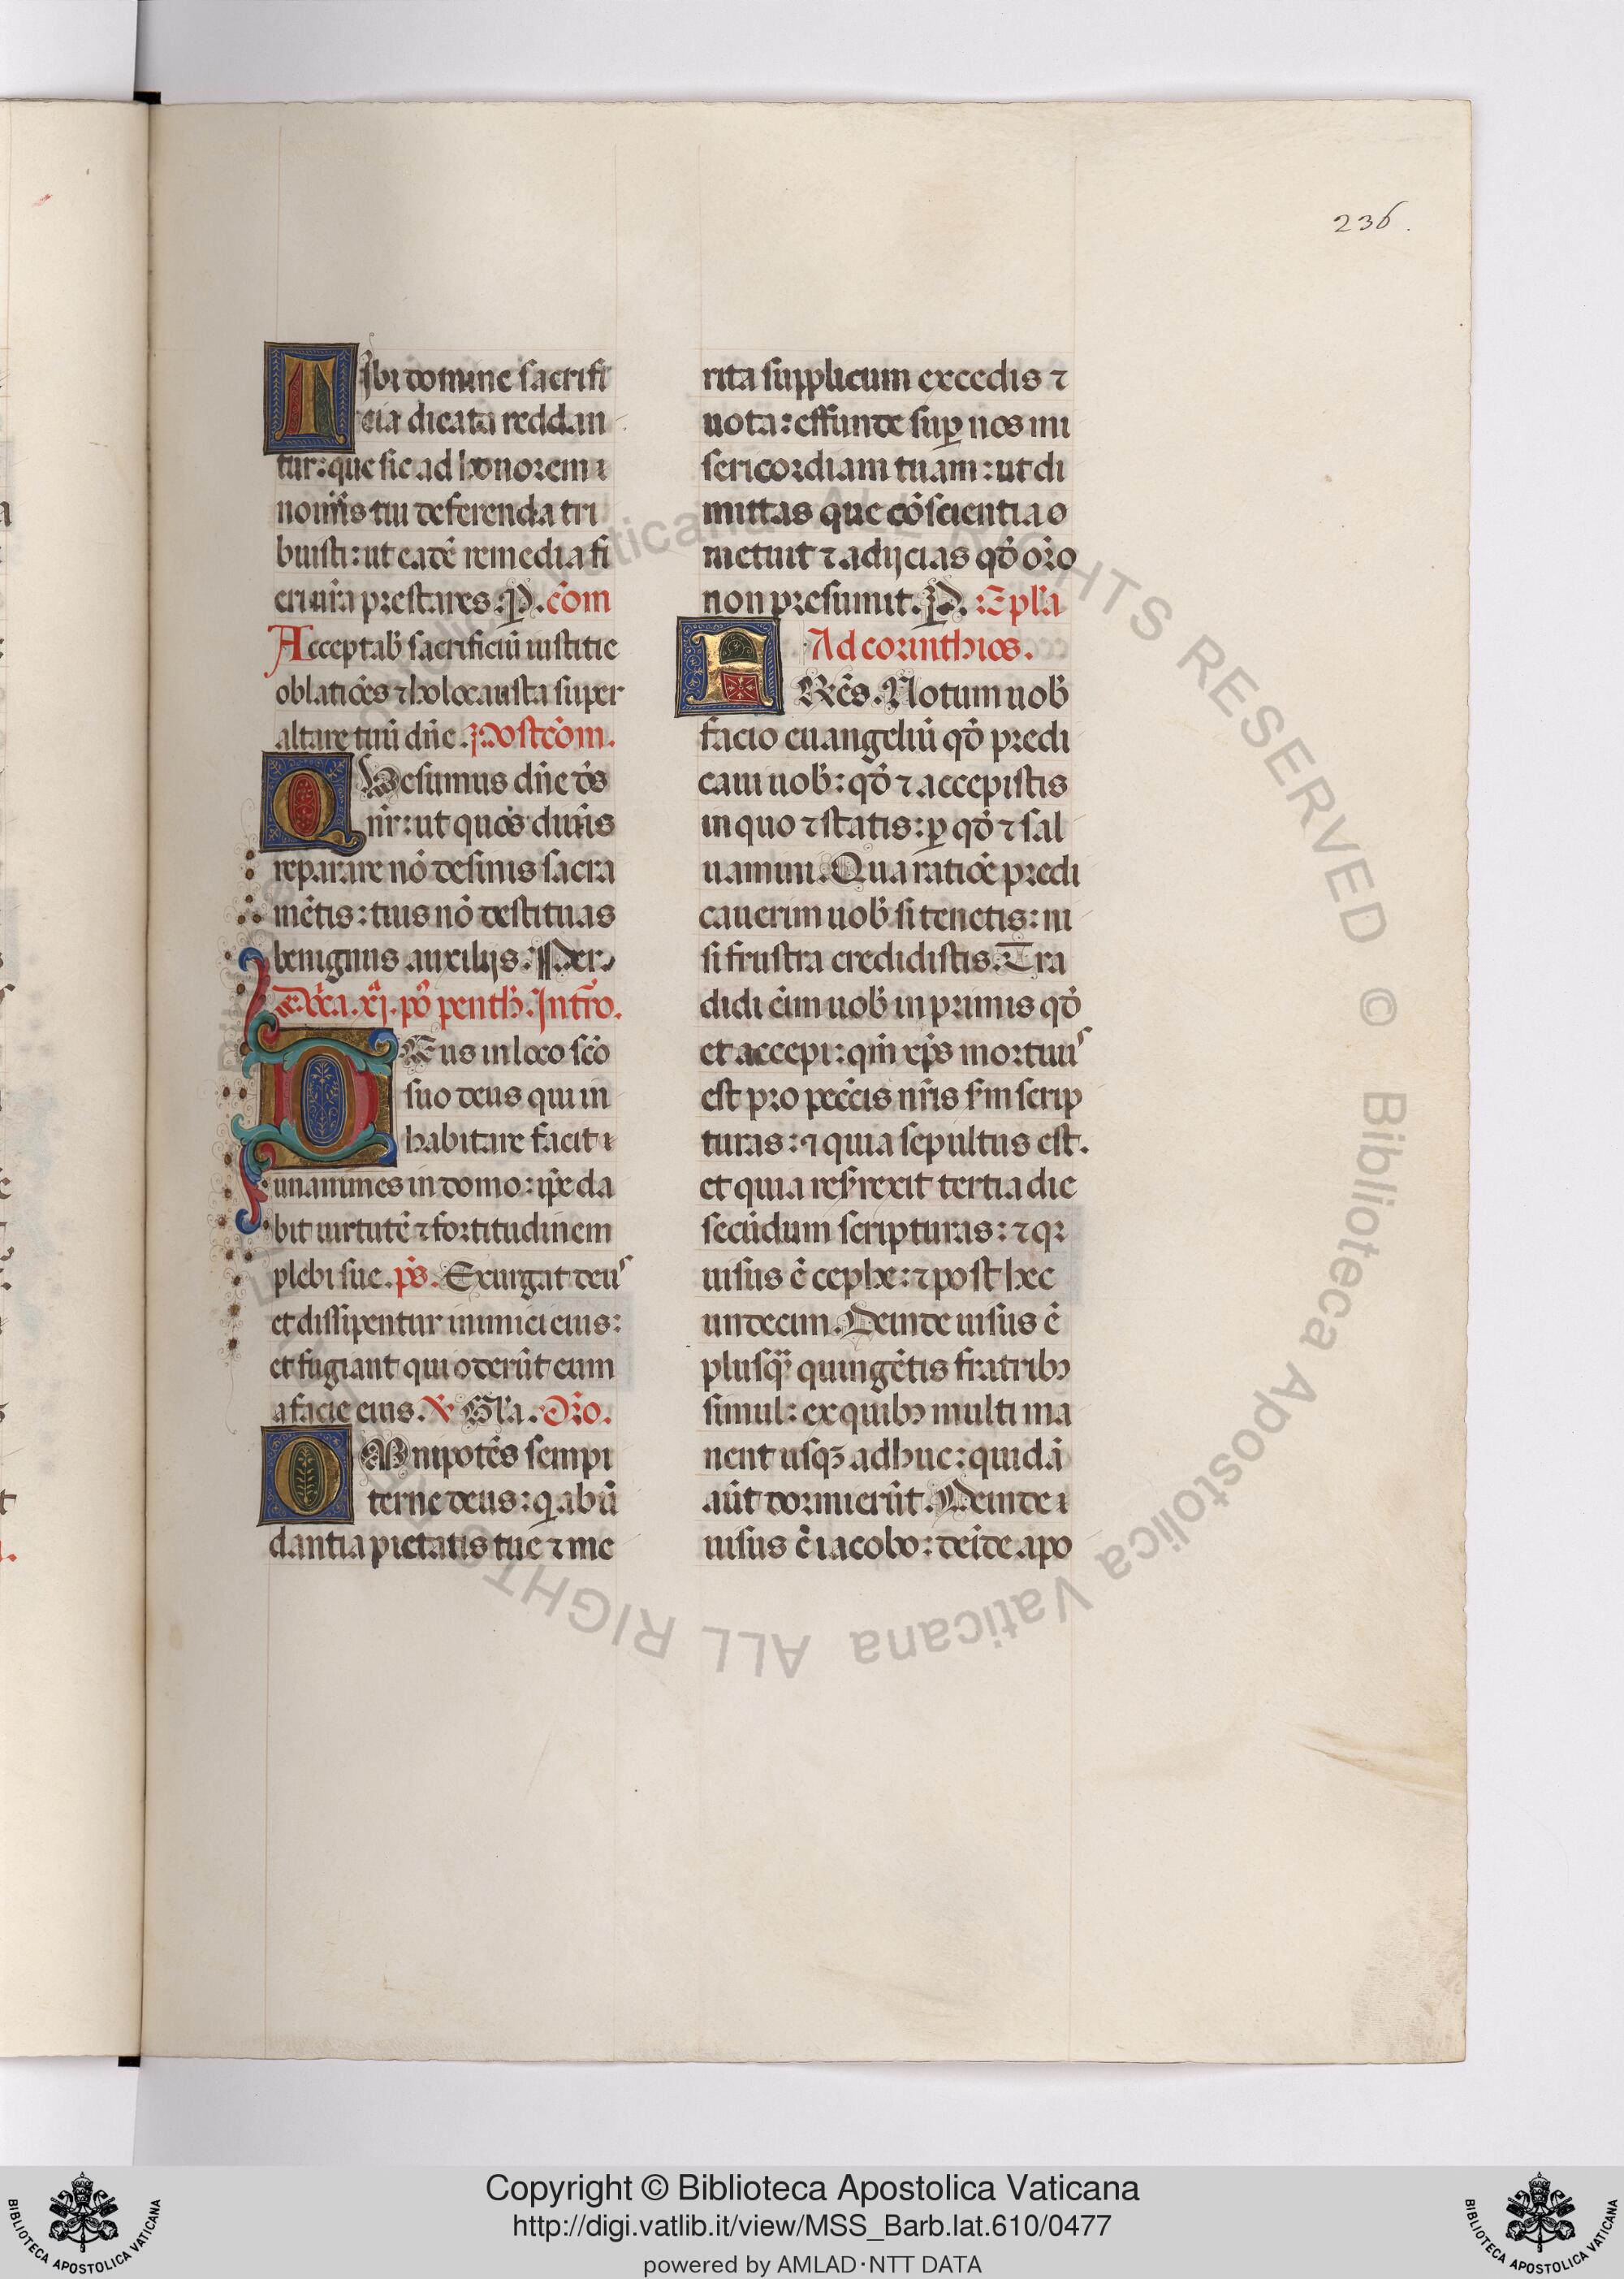 236.
Tibi domine sacrifi
cia dicata reddan
tur: que sic ad honorem
noïs tui deferenda tri
buisti: ut eadē remedia fi
eri nr̄a prestares. P. cōm
Acceptab̄ sacrificiū iustitie
oblatiōes ⁊ holocausta super
altare tuū dñe. Postcōm.
Quesumus dñe ds̄
nr̄: ut quos diuīs
reparare nō desinis sacra
mētis: tuis nō destituas
benignus auxilijs. Per.
Dn̄ica. xj. pꝰ penth̄. Introꝰ.
Deus in loco scō
suo deus qui in
habitare facit
unanimes in domo: ip̄e da
bit uirtutē ⁊ fortitudinem
plebi sue. ps̄. Exurgat deus
et dissipentur inimici eius:
et fugiant qui oderūt eum
a facie eius. V̄ Gl̄a. Orō.
Omnipotēs sempi
terne deus: q̄ abū
dantia pietatis tue ⁊ me
rita supplicum excedis ⁊
uota: effunde suꝑ nos mi
sericordiam tuam: ut di
mittas que cōscientia
metuit ⁊ adijcias qd̄ orō
non presumit. P. Epl̄a
Ad corinthios.
FRēs. Notum uob̄
facio euangeliū qd̄ predi
caui uob̄: qd̄ ⁊ accepistis
in quo ⁊ statis: ꝑ qd̄ ⁊ sal
uamini. Qua ratiōe predi
cauerim uob̄ si tenetis: ni
si frustra credidistis. Tra
didi eīm uob̄ in primis qd̄
et accepi: qm̄ xp̄s mortuus
est pro peccīs nr̄is sm̄ scrip
turas: ⁊ quia sepultus est.
et quia resr̄rexit tertia die
secūdum scripturas: ⁊ qꝛ
uisus ē cephe: ⁊ post hec
undecim. Deinde uisus ē
plusq̄ quingētis fratribꝫ
simul: ex quibꝫ multi ma
nent usqꝫ adhuc: quidā
aūt dormierūt. Deinde
uisus ē iacobo: deīde apo
Copyright © Biblioteca Apostolica Vaticana
http://digi.vatlib.it/view/MSS_Barb.lat.610/0477
powered by AMLAD·NTT DATA
BIBLIOTECA APOSTOLICA VATICANA
BIBLIOTECA APOSTOLICA VATICANA
Biblioteca Apostolica Vaticana ALL RIGHTS RESERVED ©